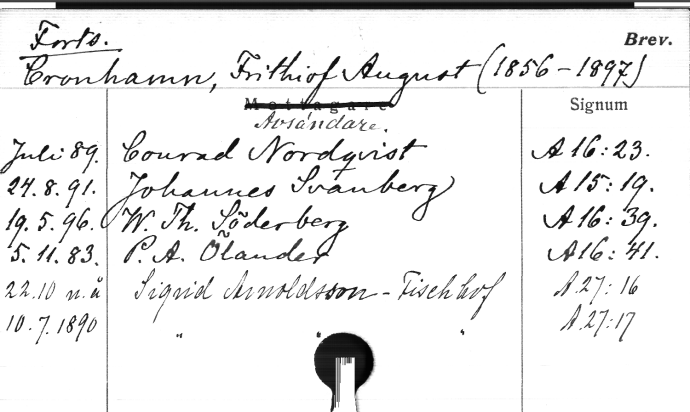 Forts.
Brev.
Cronhamn, Frithiof August (1856-1897)
Mottagare
Signum
Avsändare.
Juli 89. Conrad Nordqvist A 16:23.
24.8.91. Johannes Svanberg A 15:19.
19.5.96. W. Th. Söderberg A 16:39.
5.11.83. P. A. Ölander A 16:41.
22.10 u.å Sigrid Arnoldsson-Fischhof A.27:16
10.7.1890 " " " A.27:17